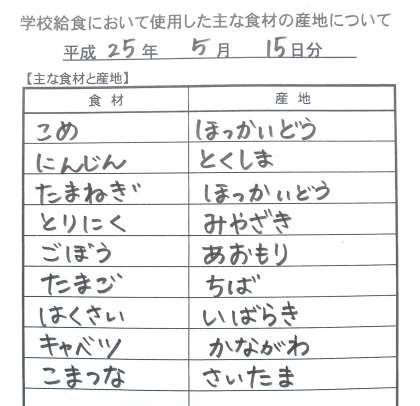 学校給食において使用した主な食材の産地について
平成 25 年 5 月 15 日分
【主な食材と産地】
食材 産地
こめ ほっかいどう
にんじん とくしま
たまねぎ ほっかいどう
とりにく みやざき
ごぼう あおもり
たまご ちば
はくさい いばらき
キャベツ かながわ
こまつな さいたま